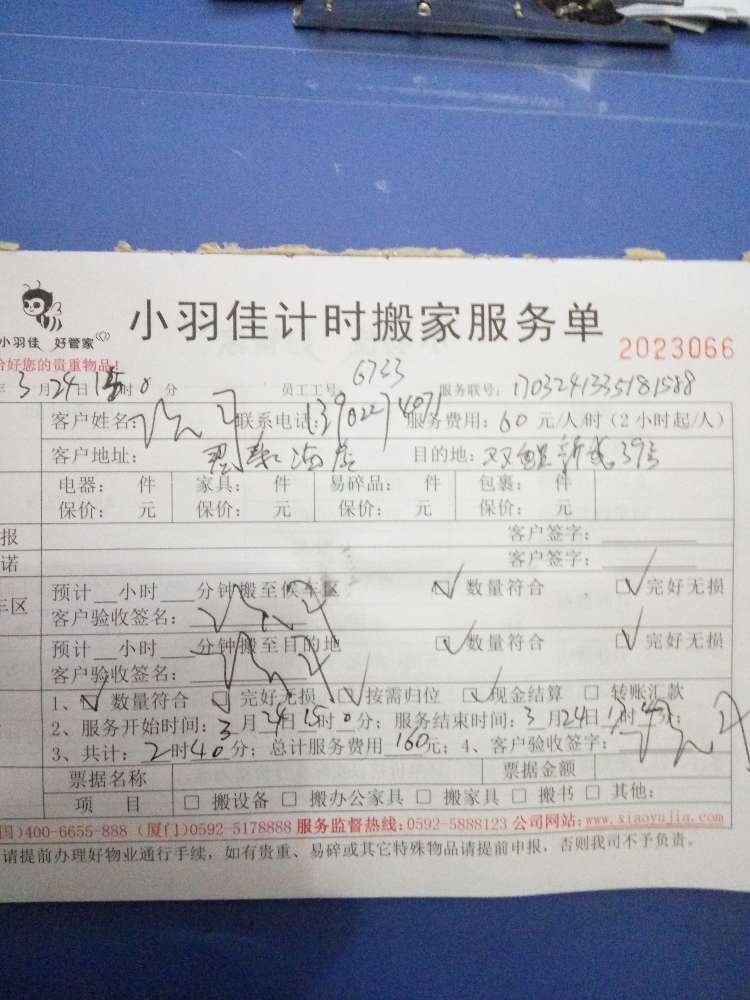 小羽佳计时搬家服务单
小羽佳 好管家
2023066
好您的贵重物品!
年 3月24日15时0分 员工工号: 6733 服务联号: 1703241335181588
客户姓名: 联系电话: 服务费用: 60 元/人/时 (2小时起/人)
客户地址: 目的地:
电器: 件 家具: 件 易碎品: 件 包裹: 件
保价: 元 保价: 元 保价: 元 保价: 元
报 客户签字:
诺 客户签字:
预计__小时___分钟搬至候车区 ☑数量符合 ☑完好无损
车区 客户验收签名:
预计__小时___分钟搬至目的地 ☑数量符合 ☑完好无损
客户验收签名:
1、☑数量符合 ☑完好无损 ☑按需归位 ☑现金结算 □ 转账汇款
2、服务开始时间: 3月24日15时0分; 服务结束时间: 3月24日17时4分;
3、共计: 2时40分; 总计服务费用 160元; 4、客户验收签字:
票据名称 票据金额
项 目 □ 搬设备 □ 搬办公家具 □ 搬家具 □ 搬书 □ 其他:
国)400-6655-888 (厦门)0592-5178888 服务监督热线:0592-5888123 公司网站:www.xiaoyujia.com
请提前办理好物业通行手续, 如有贵重、易碎或其它特殊物品请提前申报, 否则我司不予负责。